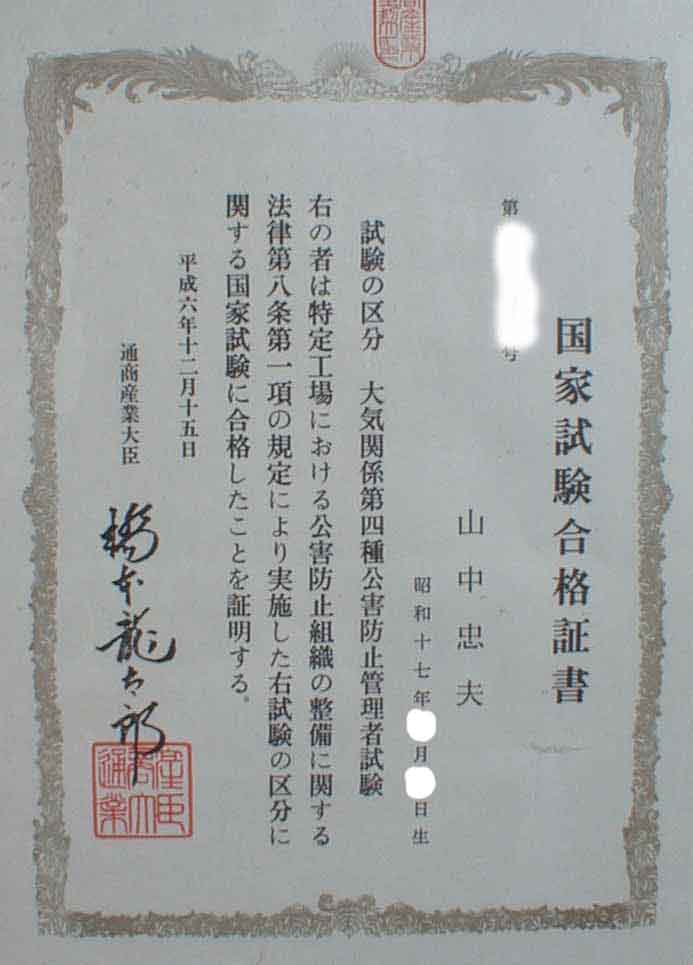 国家試験合格証書
第
号
山中忠夫
昭和十七年
月
日生
試験の区分 大気関係第四種公害防止管理者試験
右の者は特定工場における公害防止組織の整備に関する
法律第八条第一項の規定により実施した右試験の区分に
関する国家試験に合格したことを証明する。
平成六年十二月十五日
通商産業大臣
橋本龍太郎